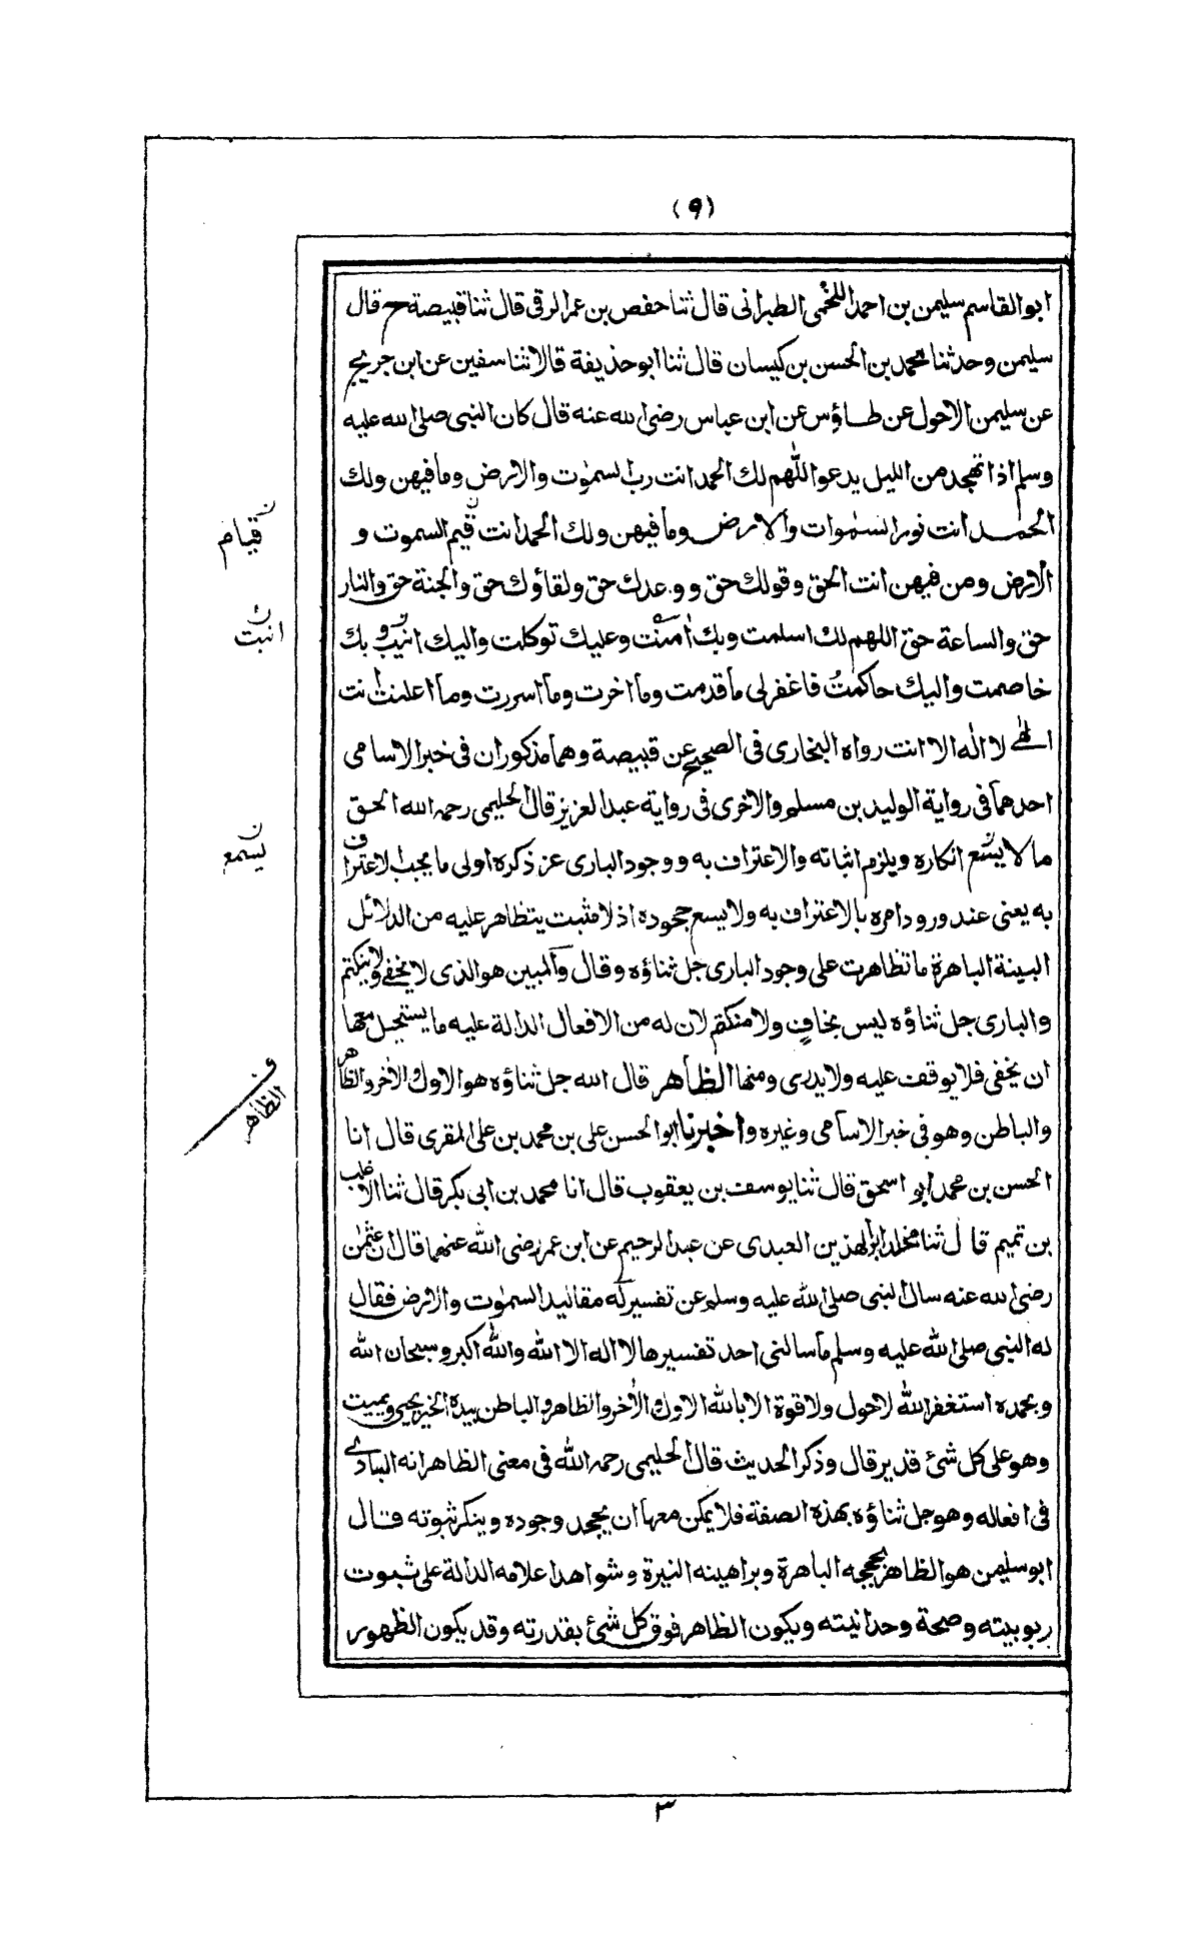 (٩)
ابو القاسم سليمن بن احمد اللخمى الطبرانى قال ثنا حفص بن عمر الرقى قال ثنا قبيصة ح قال
سليمن وحدثنا محمد بن الحسن بن كيسان قال ثنا ابو حذيفة قالا ثنا سفين عن ابن جريج
عن سليمن الاحول عن طاؤس عن ابن عباس رضى الله عنه قال كان النبى صلى الله عليه
وسلم اذا تهجد من الليل يدعو اللّٰهم لك الحمد انت رب السمٰوٰت والارض وما فيهن ولك
الحمد انت نور السمٰوات والارض وما فيهن ولك الحمد انت قيم السموت و
الارض ومن فيهن انت الحق وقولك حق ووعدك حق ولقاؤك حق والجنة حق والنار
حق والساعة حق اللهم لك اسلمت وبك اٰمنت وعليك توكلت واليك انيب وبك
خاصمت واليك حاكمتُ فاغفر لى ما قدمت وما اخرت وما اسررت وما اعلنت انت
الٰهى لا الٰه الا انت رواه البخارى فى الصحيح عن قبيصة وهما مذكوران فى خبر الاسامى
احدهما فى رواية الوليد بن مسلم والاخرى فى رواية عبد العزيز قال الحليمى رحمه الله الحق
ما لا يسع انكاره ويلزم اثباته والاعتراف به ووجود البارى عز ذكره اولى ما يجب الاعتراف
به يعنى عند ورود امره بالاعتراف به ولا يسع جحوده اذ لا مثبت يتظاهر عليه من الدلائل
البينة الباهرة ما تظاهرت على وجود البارى جل ثناؤه وقال والمبين هو الذى لا يخفى ولا ينكتم
والبارى جل ثناؤه ليس بخافٍ ولا منكتم لان له من الافعال الدالة عليه ما يستحيل معها
ان يخفى فلا يوقف عليه ولا يدرى ومنها الظاهر قال الله جل ثناؤه هو الاول والاٰخر والظاهر
والباطن وهو فى خبر الاسامى وغيره واخبرنا ابو الحسن على بن محمد بن على المقرى قال انا
الحسن بن محمد ابو اسحق قال ثنا يوسف بن يعقوب قال انا محمد بن ابى بكر قال ثنا الاغلب
بن تميم قال ثنا مخلد ابو الهذين العبدى عن عبد الرحيم عن ابن عمر رضى الله عنهما قال ان عثمٰن
رضى الله عنه سال النبى صلى الله عليه وسلم عن تفسير له مقاليد السمٰوٰت والارض فقال
له النبى صلى الله عليه وسلم ما سالنى احد تفسيرها لا اله الا الله والله اكبر وسبحان الله
وبحمده استغفر الله لا حول ولا قوة الا بالله الاول والاٰخر والظاهر والباطن بيده الخير يحيى ويميت
وهو على كل شئ قدير قال وذكر الحديث قال الحليمى رحمه الله فى معنى الظاهر انه البادى
فى افعاله وهو جل ثناؤه بهذه الصفة فلا يمكن معها ان يجحد وجوده وينكر ثبوته قال
ابو سليمن هو الظاهر بحججه الباهرة وبراهينه النيرة وشواهد اعلامه الدالة على ثبوت
ربوبيته وصحة وحدانيته ويكون الظاهر فوق كل شئ بقدرته وقد يكون الظهور
ن
قيام
ن
انبت
ن
يسمع
ف
الظاهر
٣